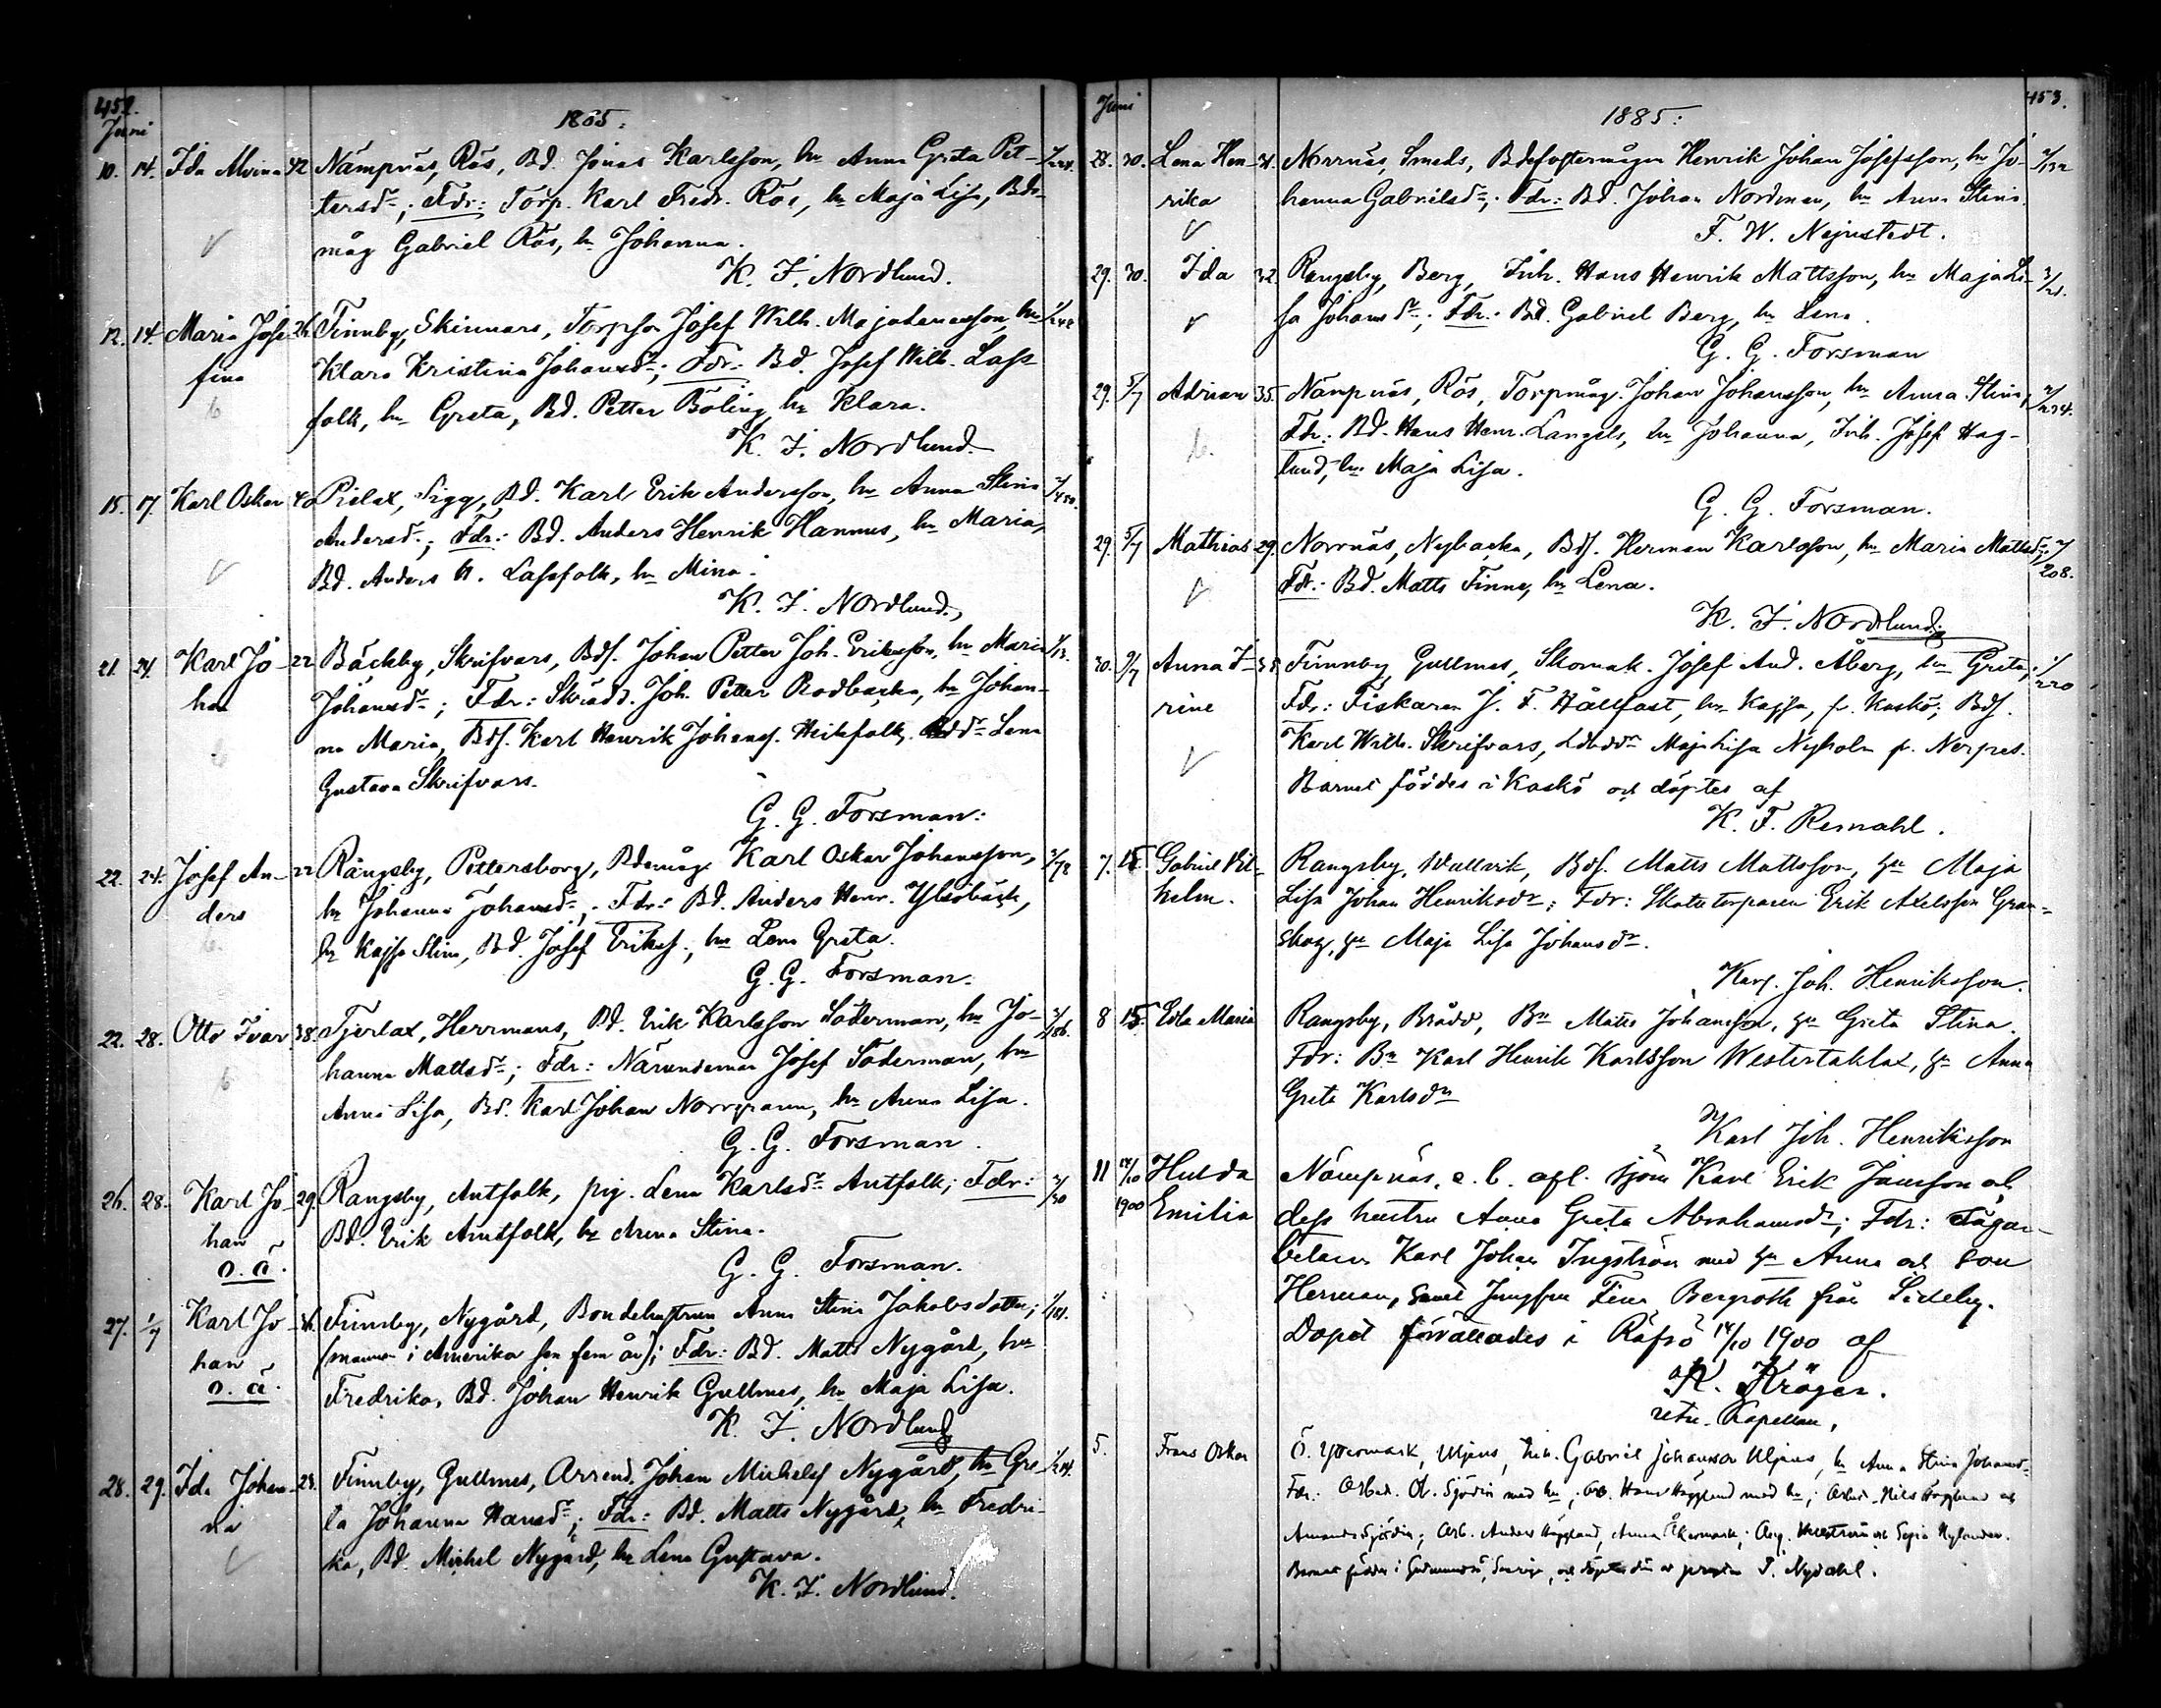 452.
Juni
1885:
10. 14. Ida Alvina 42 Nämpnäs, Rös, Bd. Jonas Karlsson, hu Anna Greta Pet-
tersdr; Fdr: Torp. Karl Fredr. Rös, hu Maja Lisa, Bde-
måg Gabriel Rös, hu Johanna.
K. J. Nordlund.
12. 14. Maria Jose- 26. Finnby, Skinnars, Torpson Josef Wilh. Majalenasson, hu
fina Klara Kristina Johansdr; Fdr: Bd. Josef Wilh. Lass-
folk, hu Greta, Bd. Petter Böling hu Klara.
K. J. Nordlund.
15. 17. Karl Oskar 40 Pielax, Sigg, Bd. Karl Erik Andersson, hu Anna Stina
Andersdr; Fdr: Bd. Anders Henrik Hannus, hu Maria,
Bd. Anders H. Lassfolk, hu Mina.
K. J. Nordlund.
21. 24. Karl Jo- 22 Bäckby, Skrifvars, Bdf. Johan Petter Joh. Eriksson, hu Maria 1/13.
han Johansdr; Fdr: Skrädd. Joh. Petter Rodbacka, hu Johan-
na Maria, Bdf. Karl Henrik Johansf. Heikfolk, Bddr Lena
Gustava Skrifvars.
G. G. Forsman.
22. 24. Josef An- 22 Rangsby, Pettersborg, Bdemåg Karl Oskar Johansson, 3/78
ders hu Johanna Johansdr; Fdr: Bd. Anders Henr. Ylisbäck,
hu Kajsa Stina, Bd. Josef Eriksf., hu Lena Greta.
G. G. Forsman.
22. 28. Otto Ivar 38. Tjerlax, Herrmans, Bd. Erik Karlsson Söderman, hu Jo- 2/186.
hanna Mattsdr; Fdr: Närundeman Josef Söderman, hu
Anna Lisa, Bd. Karl Johan Norrgrann, hu Anna Lisa.
G. G. Forsman.
26. 28. Karl Jo- 29. Rangsby, Antfolk, pig. Lena Karlsdr Antfolk; Fdr: 3/30
han Bd. Erik Antfolk, hu Anna Stina.
o. ä.
G. G. Forsman.
27. 1/7 Karl Jo- 36. Finnby, Nygård, Bondehustrun Anna Stina Jakobsdotter; 1/181.
han (mannen i Amerika sen fem år); Fdr: Bd. Matts Nygård, hu
o. ä. Fredrika, Bd. Johan Henrik Gullmes, hu Maja Lisa.
K. J. Nordlund
28. 29. Ida Johan- 23. Finnby, Gullmes, Arrend. Johan Michelsf Nygård, hu Gre- 1/214.
na ta Johanna Hansdr; Fdr: Bd. Matts Nygård, hu Fredri-
ka, Bd. Michel Nygård, hu Lena Gustava.
K. J. Nordlund.
453.
Juni
1885:
28. 30. Lena Hen- 31. Norrnäs, Smeds, Bdefostermågen Henrik Johan Josefsson, hu Jo- 2/132
rika hanna Gabrielsdr; Fdr: Bd. Johan Nordman, hu Anna Stina.
F. W. Nejnstedt.
29. 30. Ida 32. Rangsby, Berg, Inh. Hans Henrik Mattsson, hu Maja Li- 3/21.
sa Johansdr; Fdr: Bd. Gabriel Berg, hu Lena.
G. G. Forsman
29. 5/7 Adrian 35. Nämpnäs, Rös, Torpmåg. Johan Johansson, hu Anna Stina, 2/234.
Fdr: Bd. Hans Henr. Långels, hu Johanna, Inh. Josef Hag-
lund, hu Maja Lisa.
G. G. Forsman.
29. 5/7 Mathias 29. Norrnäs, Nybacka, Bdf. Herman Karlsson, hu Maria Mattsdr; 2/208.
Fdr: Bd. Matts Finne, hu Lena.
K. J. Nordlund
30. 9/7 Anna I- 38. Finnby, Gullmes, Skomak. Josef And. Åberg, hu Greta; 1/220
rine Fdr: Fiskaren J. F. Hållfast, hu Kajsa, fr. Kaskö; Bdf.
Karl Wilh. Skrifvars, Maja Lisa Nyholm fr. Nerpes.
Barnet föddes i Kaskö och döptes af
K. F. Remahl.
7. 15. Gabriel Vil- Rangsby, Wallvik, Bdf. Matts Mattsson, hu Maja
helm. Lisa Johan Henriksdr; Fdr: Skattetorparen Erik Axelsson Gran-
skog, hu Maja Lisa Johansdr.
Karl Joh. Henriksson.
8 15. Edla Maria Rangsby, Brådd, Bn Matts Johansson, hu Greta Stina.
Fdr: Bn Karl Henrik Karlsson Westertaklax, hu Anna
Greta Karlsdr
Karl Joh. Henriksson
11 14/10 1900 Hulda Nämpnäs, e. b. afl. sjöm Karl Erik Jansson och
Emilia dess hustru Anna Greta Abrahamsdr; Fdr:
Karl Johan Ingström med hu Anna och son
Herman, samt Jungfru Fina Bergroth från Sideby.
Dopet förrättades i Räfsö 14/10 1900 af
K. Kröger.
Kapellan.
5. Frans Oskar Ö. Yttermark, Uljens, Inh. Gabriel Johansson Uljens, hu Anna Stina Johansdr
Fdr. Arbet. O. Sjödin med hu; Arb. Hans Hägglund med hu; Arbet. Nils Hägglund och
Amanda Sjödin; Arb. Anders Hägglund, Anna Åkermark; Aug. och Sofia Nylander.
Barnet föddes i Gudmundrå, Sverige, och döptes där af prosten P. Nydahl.